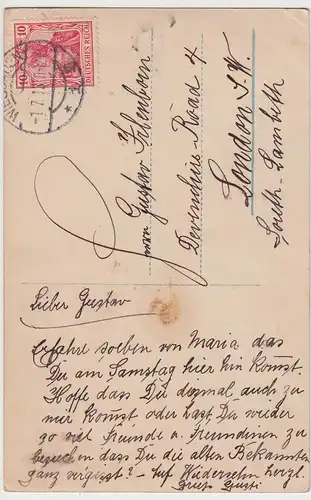 10 10
DEUTSCHES REICH
WIESBADEN
Herrn Gustav
Road 4
London S.W.
South-Lambeth
Lieber Gustav
Erfahre soeben von Maria das
Du am Samstag hier hin komst.
Hoffe das Du dasmal auch zu
mir komst oder hast Du wieder
so viel Freunde u. Freundinen zu
besuchen das Du die alten Bekannten
ganz vergisst? – Auf Wiedersehn herzl.
Gruss